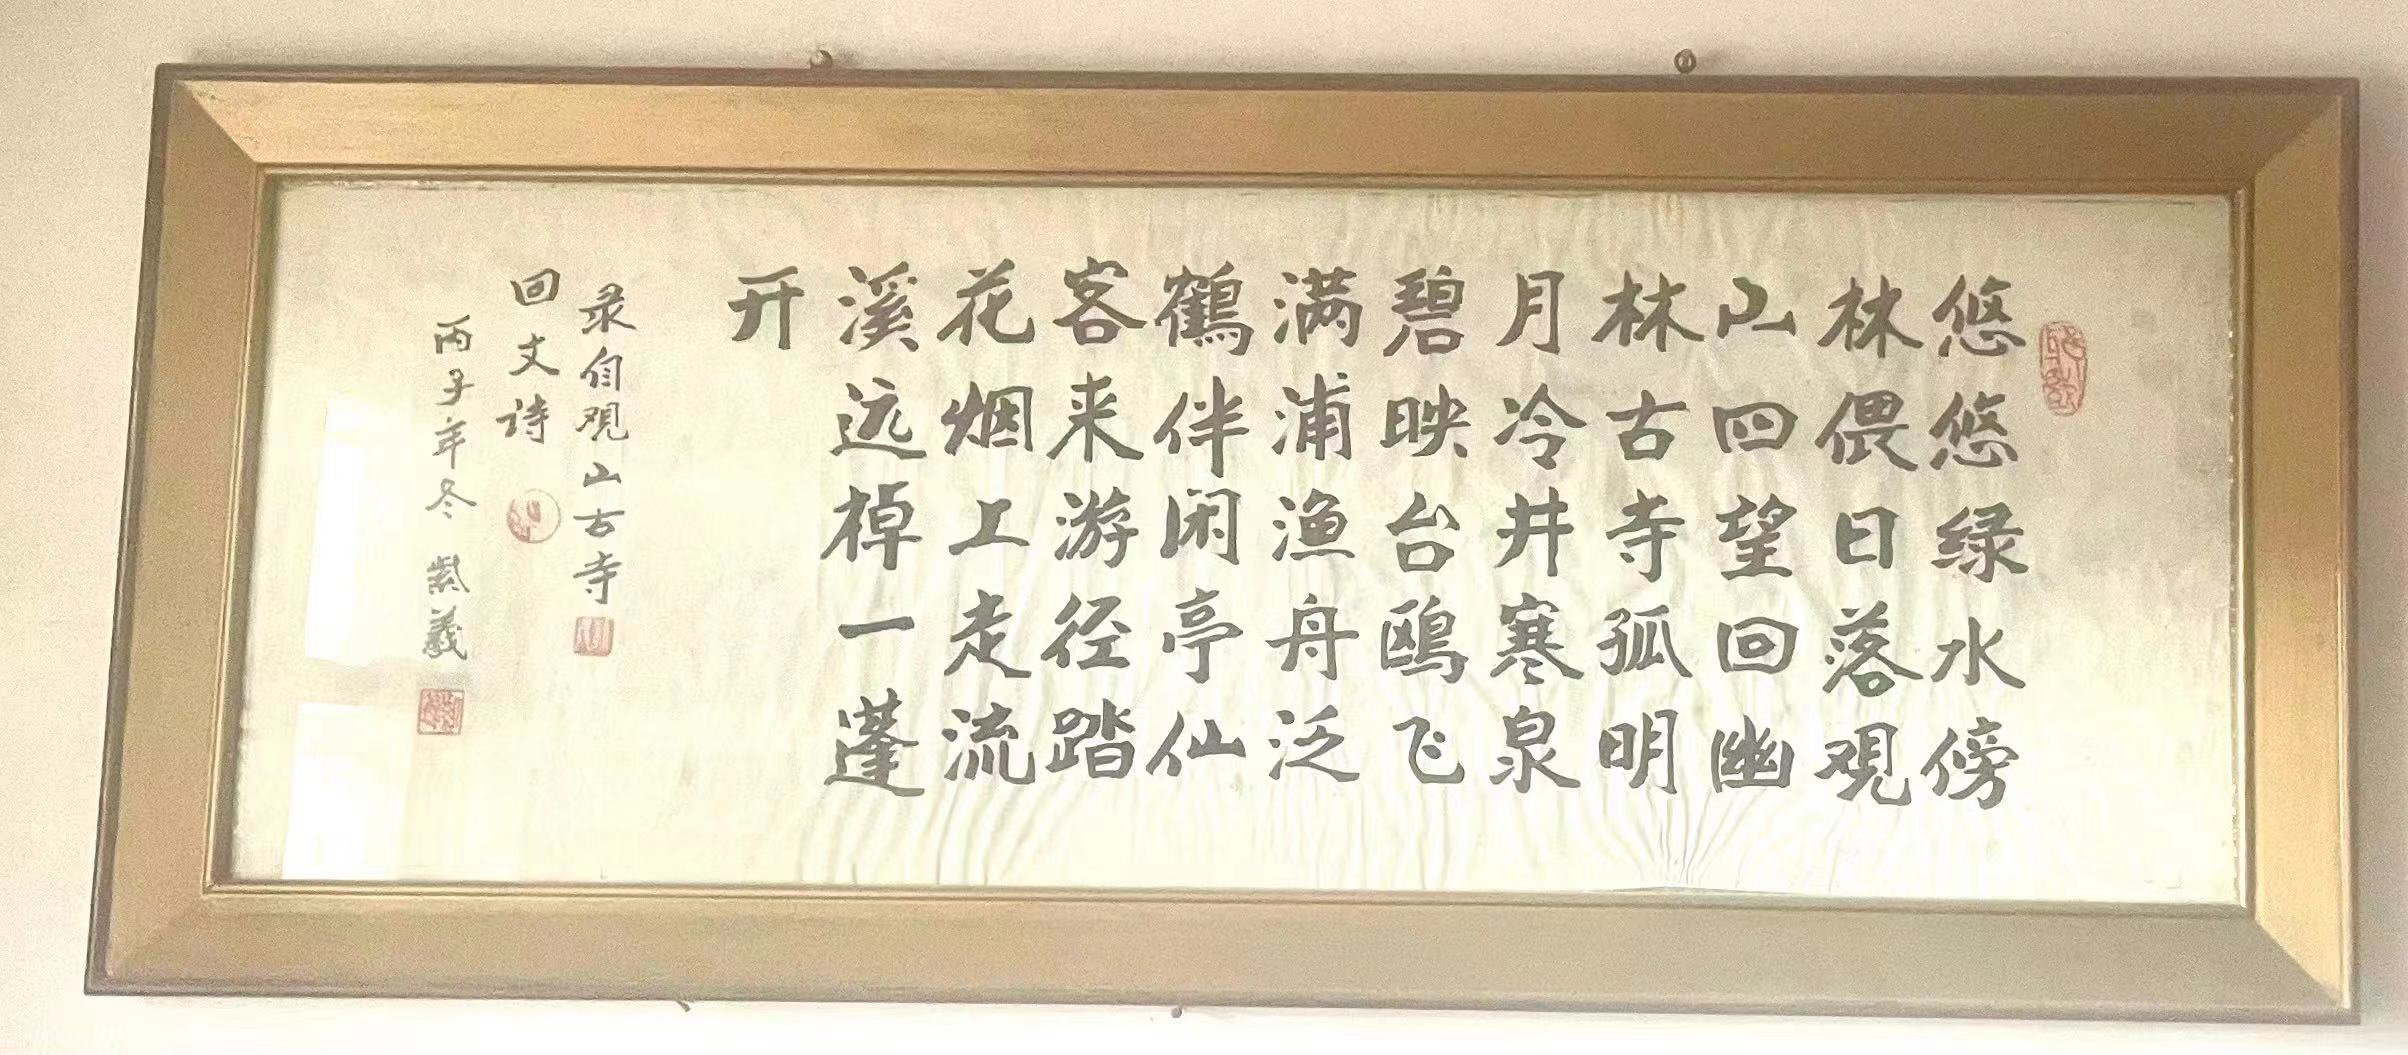 悠悠绿水傍
林偎日落观
山四望回幽
林古寺孤明
月冷井寒泉
碧映台鸥飞
满浦渔舟泛
鹤伴闲亭仙
客来游径踏
花烟上走流
溪远棹一蓬
开
录自观山古寺
回文诗
丙子年冬 紫羲